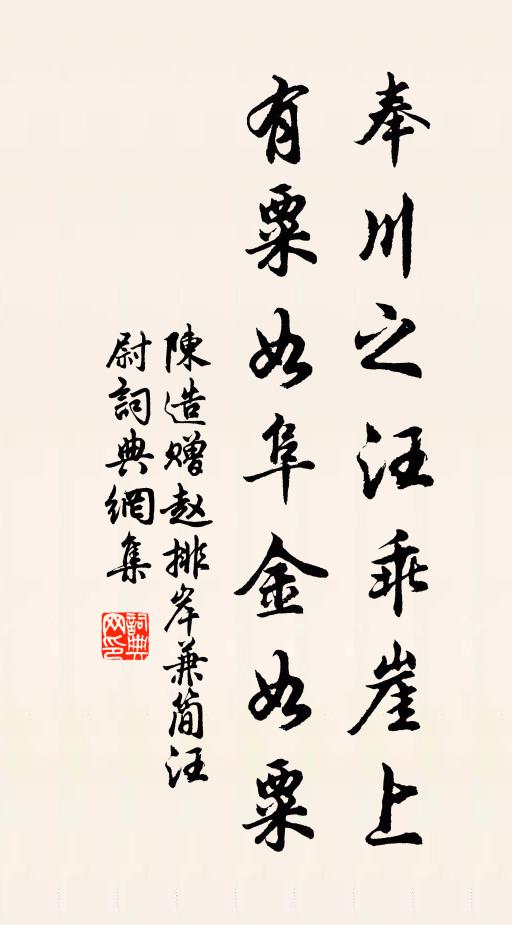 奉川之汪乖崖上
有粟如阜金如粟
陳造赠赵排岸兼简汪
尉詞典網集
詞典网印